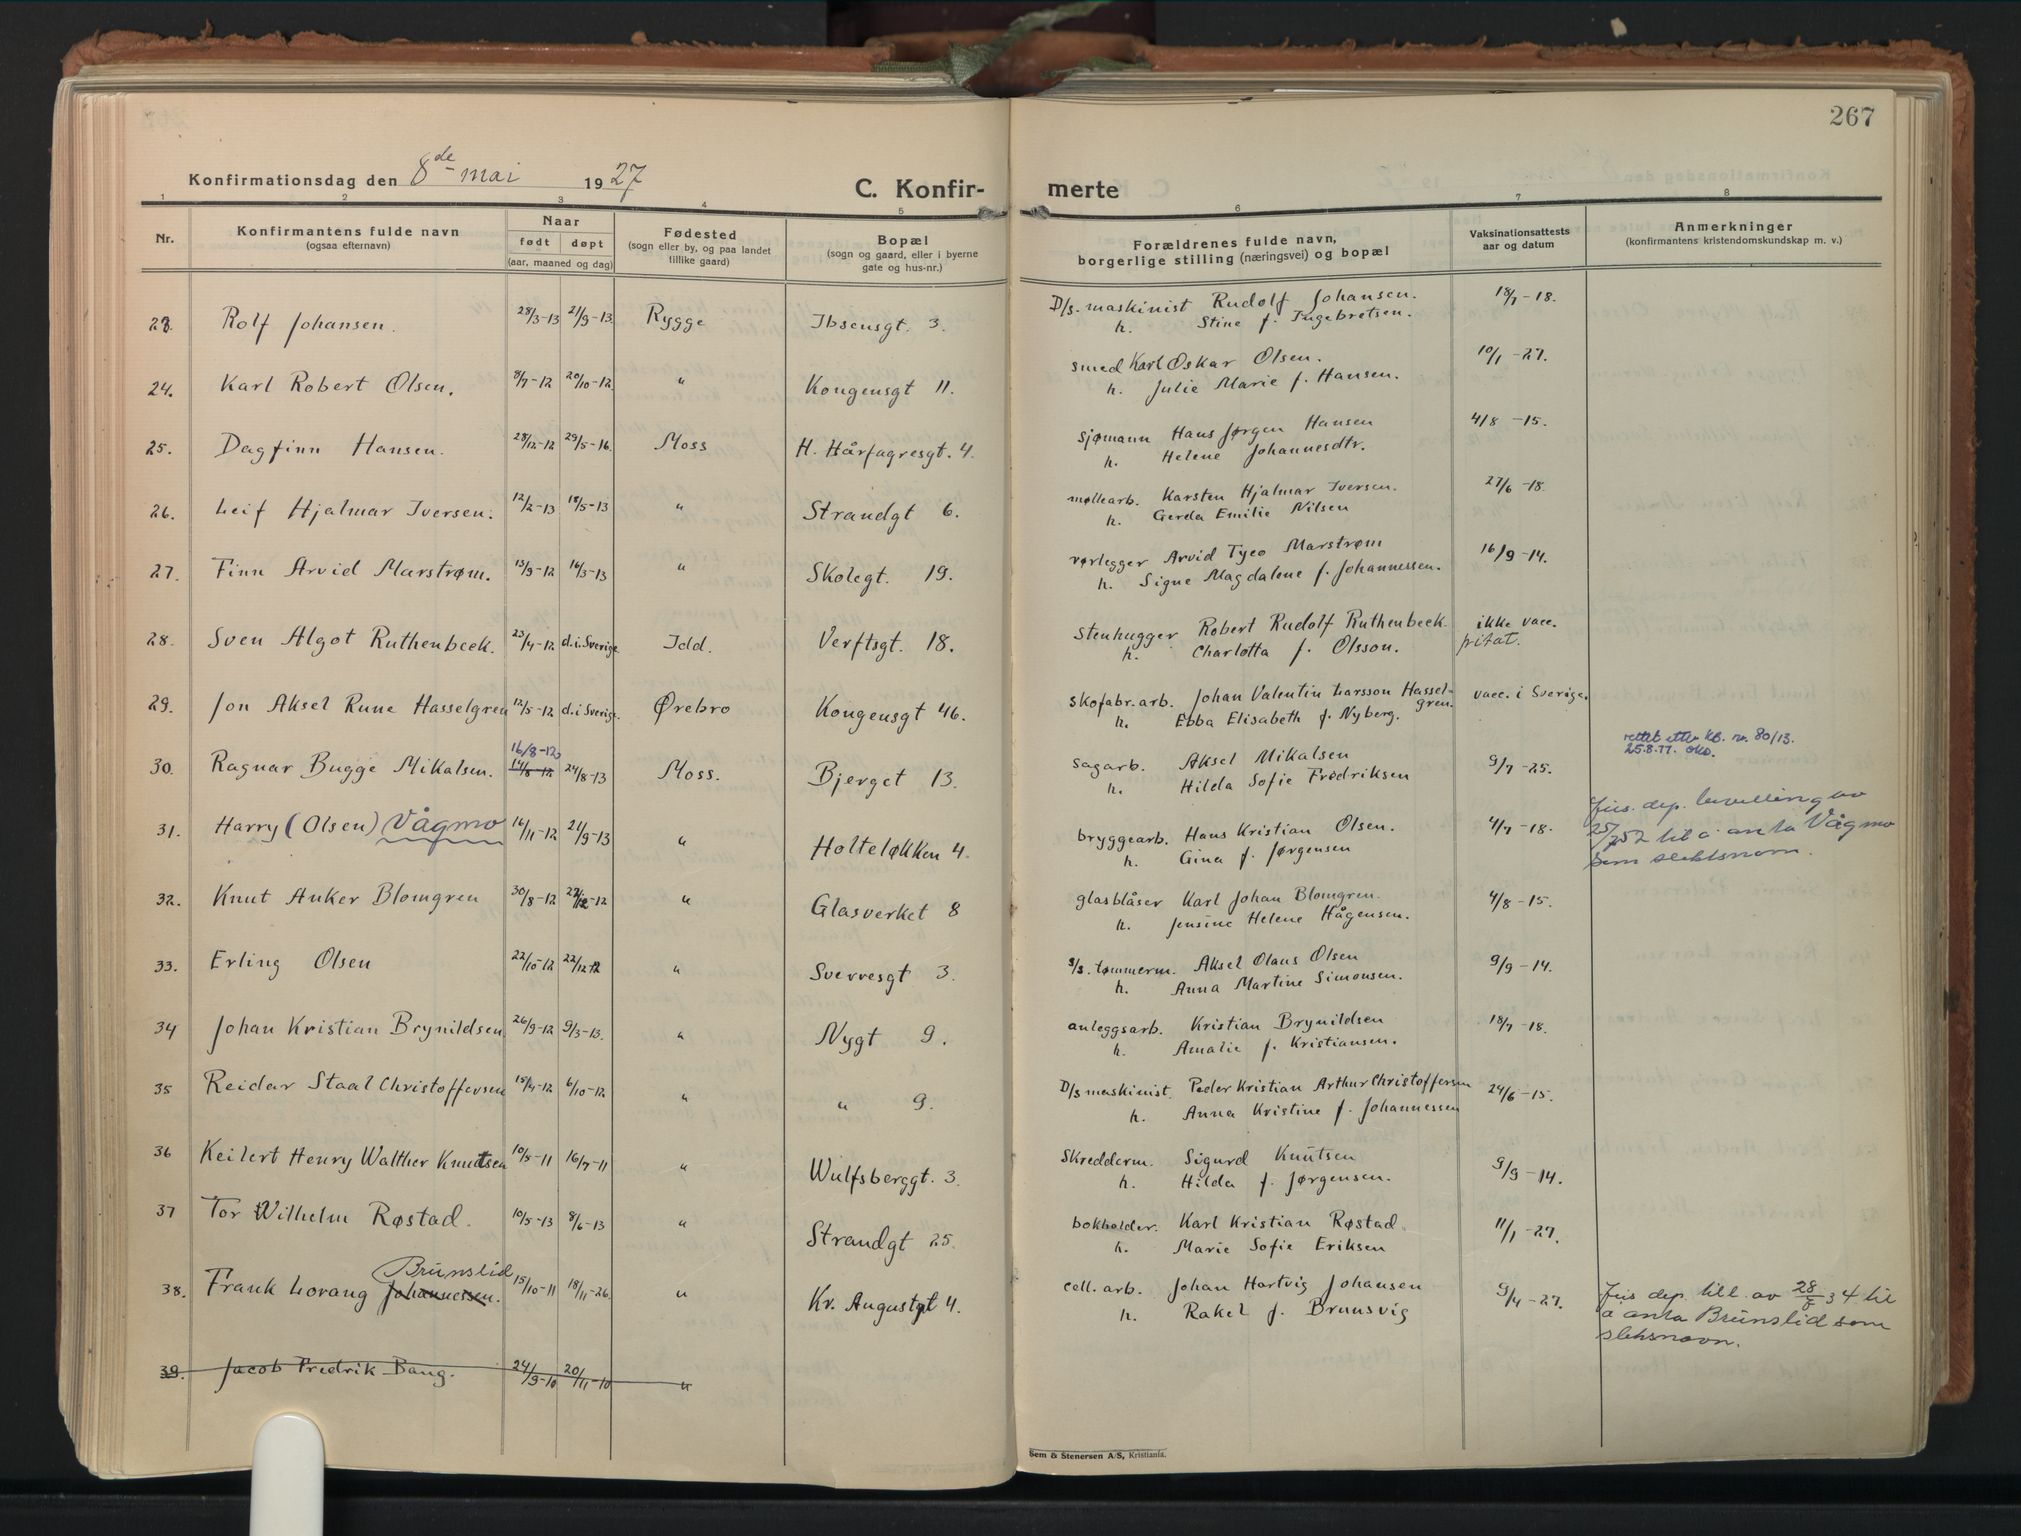 267
Konfirmationsdag den 8de mai 1927
C. Konfir- merte
1 2 3 4 5 6 7 8
Nr. Konfirmantens fulde navn (ogsaa efternavn) Naar født døpt (aar, maaned og dag) Fødested (sogn eller by, og paa landet tillike gaard) Bopæl (sogn og gaard, eller i byerne gate og hus-nr.) Forældrenes fulde navn, borgerlige stilling (næringsvei) og bopæl Vaksinationsattests aar og datum Anmerkninger (konfirmantens kristendomskundskap m. v.)
23. Rolf Johansen. 28/3-13 21/9-13. Rygge Ibsensgt. 3. D/s. maskinist Rudolf Johansen. 18/7-18.
h. Stine f. Ingebretsen.
24. Karl Robert Olsen. 8/7-12 20/10-12. " Kongensgt 11. smed Karl Oskar Olsen. 10/1-27.
h. Julie Marie f. Hansen.
25. Dagfinn Hansen. 28/12-12 29/5-16. Moss H. Hårfagresgt. 4. sjømann Hans Jørgen Hansen 4/8-15.
h. Helene Johannesdtr.
26. Leif Hjalmar Iversen. 12/2-13 18/5-13 " Strandgt 6. møllearb. Karsten Hjalmar Iversen. 27/6-18.
h. Gerda Emilie Nilsen
27. Finn Arvid Marstrøm. 13/9-12 16/3-13 " Skolegt. 19. rørlegger Arvid Tyco Marstrøm 16/9-14.
h. Signe Magdalene f. Johannessen.
28. Sven Algot Ruthenbeek. 23/4-12 d.i. Sverige Idd. Verftsgt. 18. stenhugger Robert Rudolf Ruthenbeek ikke vacc.
h. Charlotta f. Olsson.
29. Jon Aksel Rune Hasselgren 12/5-12 d. i Sverige. Ørebro Kongensgt 46. skofabr. arb. Johan Valentin Larsson Hassel- vacc. i Sverige.
gren.
h. Ebba Elisabeth f. Nyberg.
16/8-12 rettet etter kb. nr. 80/13.
25.8.77.
30. Ragnar Bugge Mikalsen. 14/8-12 24/8-13 Moss. Bjerget 13. sagarb. Aksel Mikalsen 9/7-25.
h. Hilda Sofie Fredriksen
31. Harry (Olsen) Vågmo 16/11-12 21/9-13 " Holteløkken 4. bryggearb. Hans Kristian Olsen. 4/7-18. Jus. dep. bevilling av
h. Gina f. Jørgensen 25/7 52 til å anta Vågmo
som slektsnavn.
32. Knut Anker Blomgren 30/8-12 22/12-12 " Glasverket 8 glasblåser Karl Johan Blomgren. 4/8-15.
h. Jensine Helene Hågensen.
33. Erling Olsen 22/10-12 22/12-12 " Sverresgt 3. s/s. tømmerm. Aksel Olaus Olsen 9/9-14.
h. Anna Martine Simonsen.
34 Johan Kristian Brynildsen 26/9-12 9/3-13. " Nygt 9. anleggsarb. Kristian Brynildsen 18/7-18.
h. Amalie f. Kristiansen.
35 Reidar Staal Christoffersen 15/4-12 6/10-12 " " 9. D/s maskinist. Peder Kristian Arthur Christoffersen 24/6-15.
h. Anna Kristine f. Johannessen
36 Keilert Henry Walther Knutsen 10/5-11 16/7-11 " Wulfsberggt. 3. Skredderm. Sigurd Knutsen 9/9-14.
h. Hilda f. Jørgensen.
37 Tor Wilhelm Røstad. 10/5-13 8/6-13 " Strandgt 25. bokholder. Karl Kristian Røstad. 11/1-27.
h. Marie Sofie Eriksen
Brunslid
38. Frank Lorang Johannessen. 15/10-11 18/11-26. " Kr. Augustgt 4. cell. arb. Johan Hartvig Johansen 9/4-27. Jus dep. till. av 28/8 34 til
h. Rakel f. Brunsvig å anta Brunslid som
slektsnavn.
39. Jacob Fredrik Bang. 24/9-10 20/11-10 "
Sem & Stenersen A/S, Kristiania.